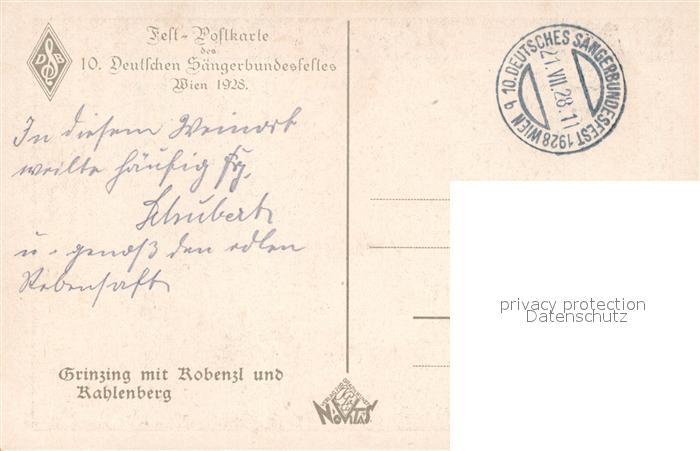 DSB
Fest-Postkarte
des
10. Deutschen Sängerbundesfestes
Wien 1928.
10. DEUTSCHES SÄNGERBUNDESFEST 1928 WIEN b
21.VII.28.11
In diesem Weinort
weilte häufig Frz.
Schubert
u. genoß den edlen
Rebensaft
privacy protection
Datenschutz
Grinzing mit Kobenzl und
Kahlenberg
NOVITAS